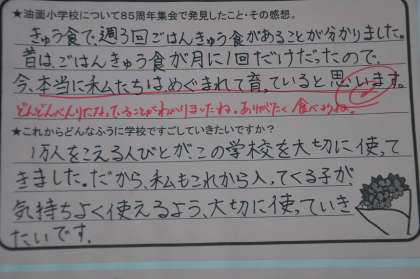 ★油面小学校について85周年集会で発見したこと・その感想。
きゅう食で、週3回ごはんきゅう食があることが分かりました。
昔はごはんきゅう食が月に1回だけだったので、
今、本当に私たちは、めぐまれて育っていると思います。
どんどんべんりになっていることがわかりましたね。ありがたく食べようね。
★これからどんなふうに学校ですごしていきたいですか?
1万人をこえる人びとが、この学校を大切に使って
きました。だから、私もこれから入ってくる子が、
気持ちよく使えるよう、大切に使っていき
たいです。